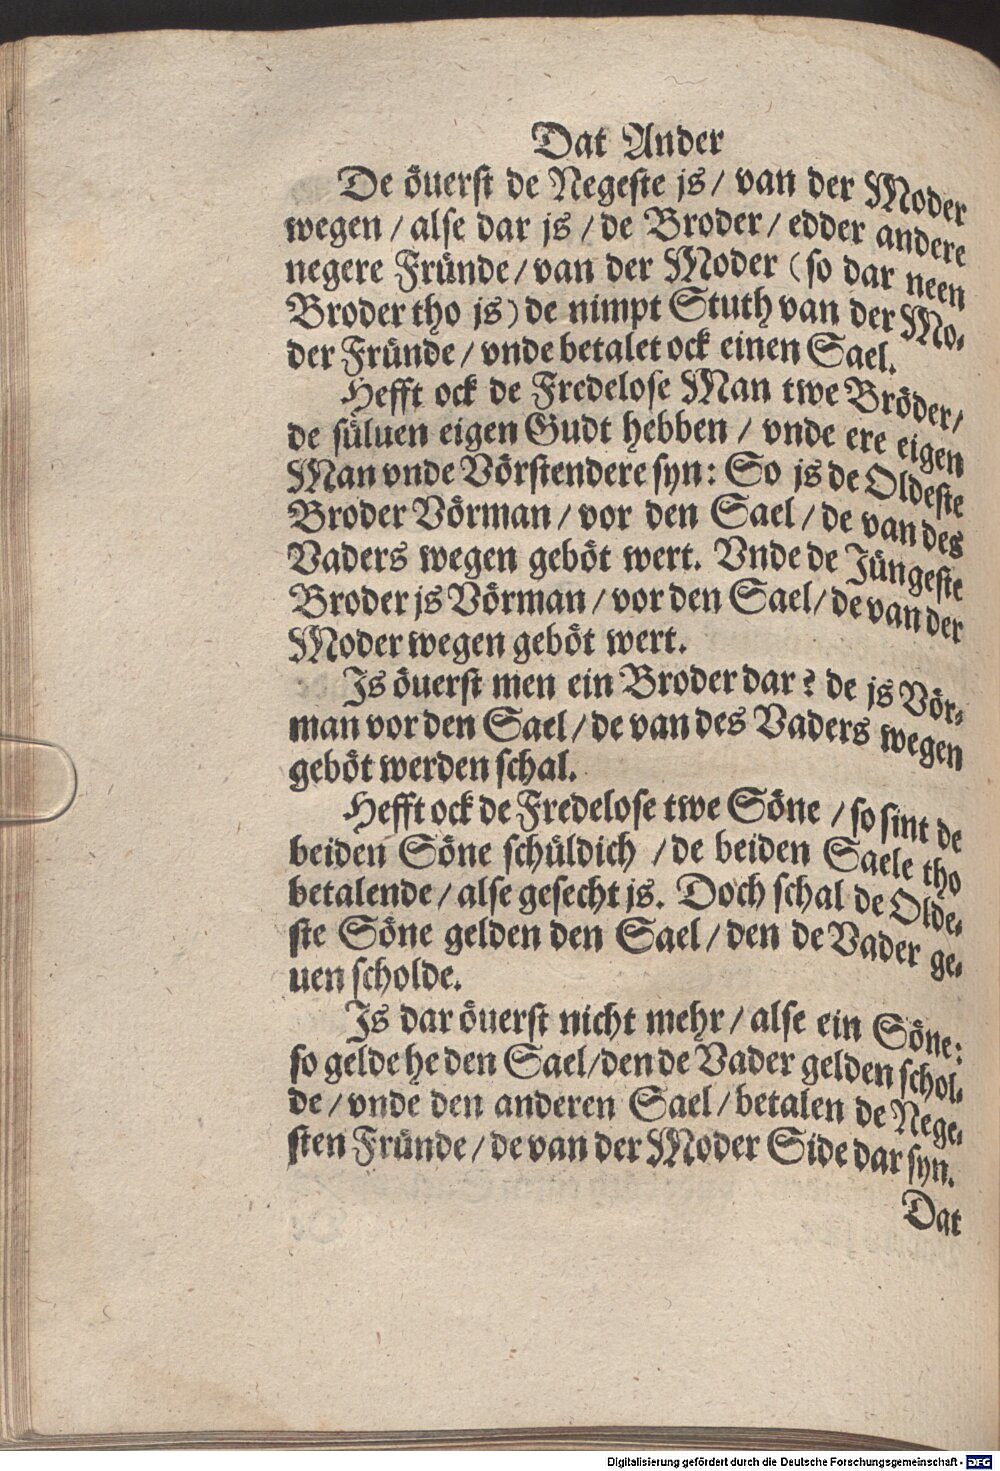 Dat Ander
De öuerst de Negeste js / van der Moder
wegen / alse dar js / de Broder / edder andere
negere Fründe / van der Moder (so dar neen
Broder tho js) de nimpt Stuth van der Mo-
der Fründe / vnde betalet ock einen Sael.
Hefft ock de Fredelose Man twe Bröder /
de süluen eigen Gudt hebben / vnde ere eigen
Man vnde Vörstendere syn: So js de Oldeste
Broder Vörman / vor den Sael / de van des
Vaders wegen geböt wert. Vnde de Jüngeste
Broder js Vörman / vor den Sael / de van der
Moder wegen geböt wert.
Js öuerst men ein Broder dar? de js Vör-
man vor den Sael / de van des Vaders wegen
geböt werden schal.
Hefft ock de Fredelose twe Söne / so sint de
beiden Söne schüldich / de beiden Saele tho
betalende / alse gesecht js. Doch schal de Olde-
ste Söne gelden den Sael / den de Vader ge-
uen scholde.
Js dar öuerst nicht mehr / alse ein Söne:
so gelde he den Sael / den de Vader gelden schol-
de / vnde den anderen Sael / betalen de Nege-
sten Fründe / de van der Moder Side dar syn.
Dat
Digitalisierung gefördert durch die Deutsche Forschungsgemeinschaft - DFG